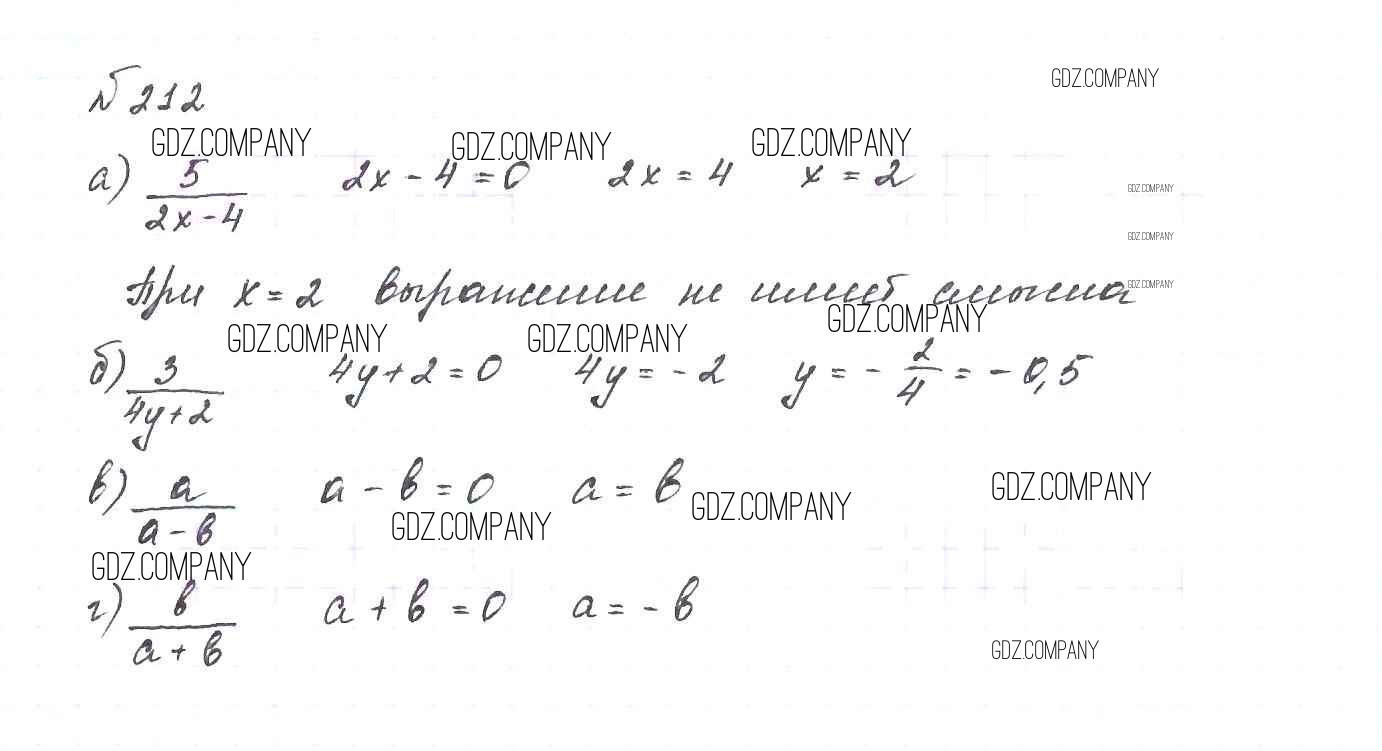 № 212
GDZ.COMPANY
GDZ.COMPANY GDZ.COMPANY GDZ.COMPANY
а) 5/(2x-4) 2x - 4 = 0 2x = 4 x = 2
GDZ.COMPANY
GDZ.COMPANY
При x = 2 выражение не имеет смысла
GDZ.COMPANY
GDZ.COMPANY GDZ.COMPANY GDZ.COMPANY
б) 3/(4y+2) 4y + 2 = 0 4y = - 2 y = - 2/4 = - 0,5
в) a/(a-в) a - в = 0 a = в
GDZ.COMPANY GDZ.COMPANY GDZ.COMPANY
GDZ.COMPANY
г) в/(a+в) a + в = 0 a = - в
GDZ.COMPANY